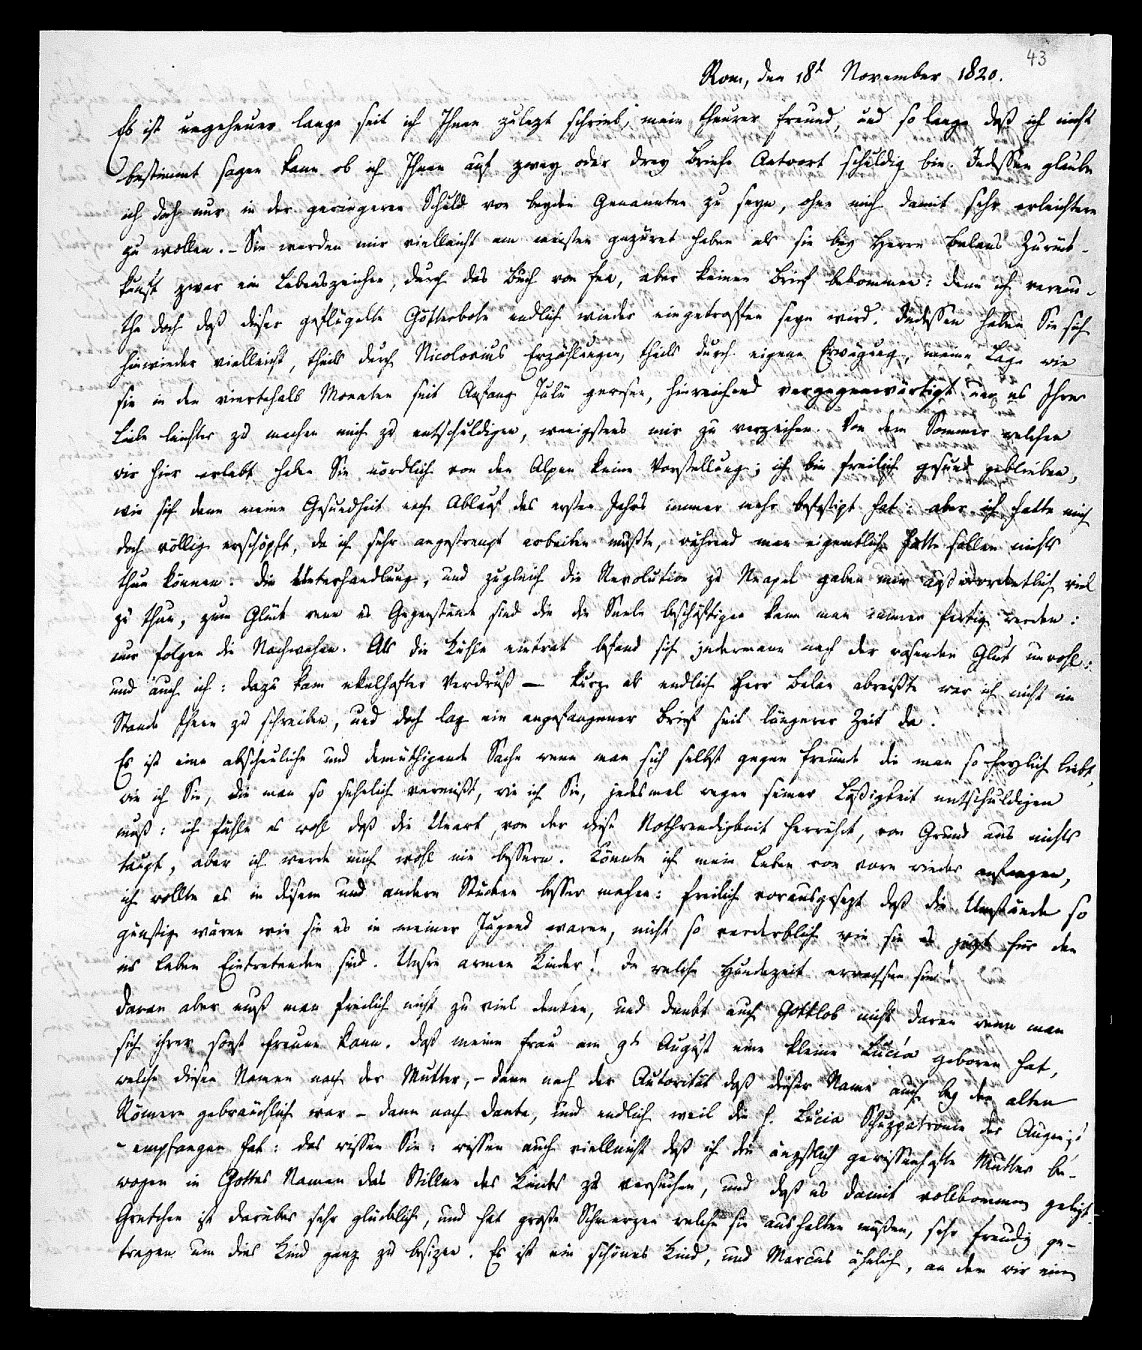 43
Rom, den 18t November 1820.
Es ist ungeheuer lange seit ich Ihnen zulezt schrieb, mein theurer Freund, und so lange daß ich nicht
bestimmt sagen kann ob ich Ihnen auf zwey oder drey Briefe Antwort schuldig bin. Indessen glaube
ich doch nur in der geringeren Schuld von beyden Genannten zu seyn, ohne mich damit sehr erleichtern
zu wollen. – Sie werden mir vielleicht am meisten gezürnt haben als sie bey Herrn Balans Zurück-
kunft zwar ein Lebenszeichen, durch das Buch von Fea, aber keinen Brief bekommen: denn ich vermu-
the doch daß dieser geflügelte Götterbote endlich wieder eingetroffen seyn wird. Indessen haben Sie sich
hinwieder vielleicht, theils durch Nicolovius Erzählungen, theils durch eigene Erwägung, meine Lage wie
sie in den viertehalb Monaten seit Anfang Julii gewesen, hinreichend vergegenwärtigt um es Ihrer
Liebe leichter zu machen mich zu entschuldigen, wenigstens mir zu verzeihen. Von dem Sommer welchen
wir hier erlebt haben Sie nördlich von den Alpen keine Vorstellung; ich bin freilich gesund geblieben,
wie sich denn meine Gesundheit nach Ablauf des ersten Jahrs immer mehr befestigt hat: aber ich hatte mich
doch völlig erschöpft, da ich sehr angestrengt arbeiten mußte, während man eigentlich hätte sollen nichts
thun können. Die Unterhandlung, und zugleich die Revolution zu Neapel gaben mir außerordentlich viel
zu thun, zum Glück wenn es Gegenstände sind die die Seele beschäftigen kann man immer fertig werden:
nur folgen die Nachwehen. Als die Kühle eintrat befand sich jedermann nach der rasenden Glut unwohl:
und auch ich: dazu kam ekelhafter Verdruß — kurz als endlich Herr Balan abreißte war ich nicht im
Stande Ihnen zu schreiben, und doch lag ein angefangener Brief seit längerer Zeit da.
Es ist eine abscheuliche und demüthigende Sache wenn man sich selbst gegen Freunde die man so herzlich liebt,
wie ich Sie, die man so sehnlich vermißt, wie ich Sie, jedesmal wegen seiner Läßigkeit entschuldigen
muß: ich fühle es wohl daß die Unart, von der diese Nothwendigkeit herrührt, von Grund aus nichts
taugt, aber ich werde mich wohl nie bessern. Könnte ich mein Leben von vorn wieder anfangen,
ich wollte es in diesem und andern Stücken besser machen: freilich vorausgesezt daß die Umstände so
günstig wären wie sie es in meiner Jugend waren, nicht so verderblich wie sie es jezt für den
ins Leben Eintretenden sind. Unsre armen Kinder! In welche Hundezeit erwachsen sie!
Daran aber muß man freilich nicht zu viel denken, und denkt auch Gottlob nicht daran wenn man
sich ihrer sonst freuen kann. Daß meine Frau am 9t August eine kleine Lucia geboren hat,
welche diesen Namen nach der Mutter, – dann nach der Autorität daß dieser Name auch bey den alten
Römern gebräuchlich war – dann nach Dante, und endlich weil die h. Lucia Schuzpatronin der Augen ist
– empfangen hat: das wissen Sie: wissen auch vielleicht daß ich die ängstlich gewissenhafte Mutter be-
wogen in Gottes Namen das Stillen des Kindes zu versuchen, und daß es damit vollkommen gelingt.
Gretchen ist darüber sehr glücklich, und hat große Schmerzen welche sie aushalten müßen, sehr freudig ge-
tragen um dies Kind ganz zu besizen. Es ist ein schönes Kind, und Marcus ähnlich, an dem wir eine